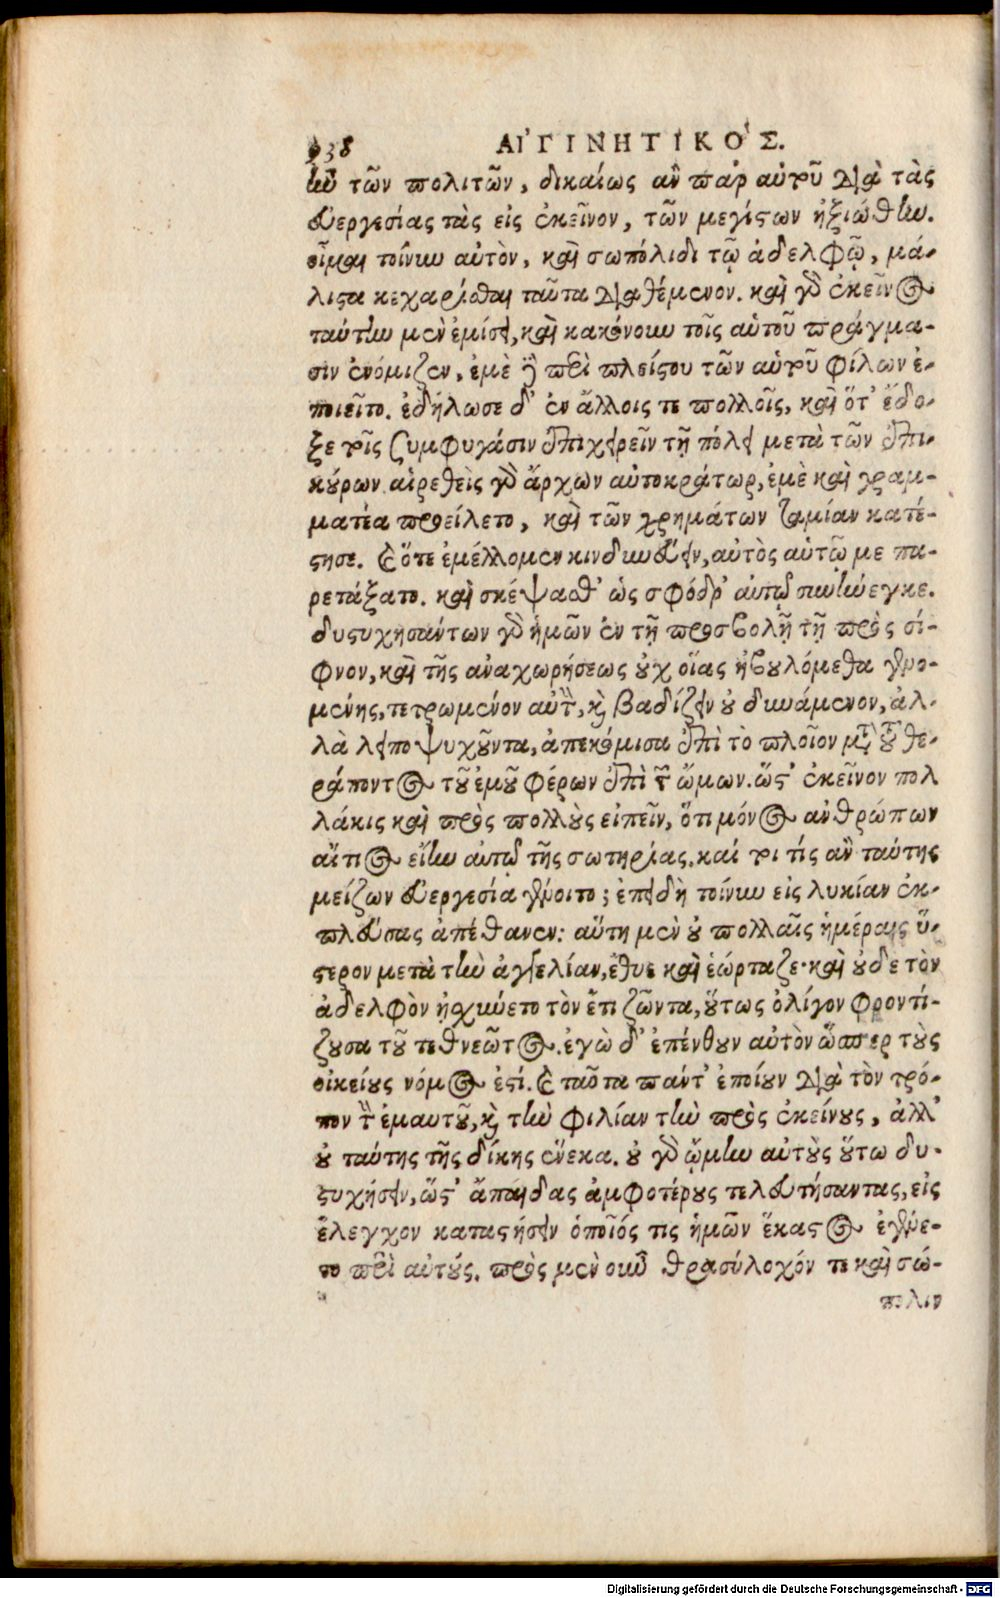 938 ΑἸΓΙΝΗΤΙΚΟΣ.
ἰὼ τῶν πολιτῶν, δικαίως ἀν παρ αὐτοῦ διὰ τὰς
εὐεργεσίας τὰς εἰς ἐκεῖνον, τῶν μεγίστων ἠξιώθην.
οἶμαι τοίνυν αὐτὸν, καὶ σωπόλιδι τῷ ἀδελφῷ, μά-
λιστα κεχαρίσθαι ταῦτα διαθέμενον. καὶ γὸ ἐκεῖνος
ταύτην μὲν ἐμίσει, καὶ κακόνουν τοῖς αὑτοῦ πράγμα-
σιν ἐνόμιζεν, ἐμὲ δὲ περὶ πλείστου τῶν αὑτοῦ φίλων ἐ-
ποιεῖτο. ἐδήλωσε δ' ἐν ἄλλοις τε πολλοῖς, καὶ ὅτ' ἔδο-
ξε τοῖς ζυμφυγάσιν ἐπιχειρεῖν τῇ πόλει μετὰ τῶν ἐπι-
κούρων. αἱρεθεὶς γὸ ἄρχων αὐτοκράτωρ, ἐμὲ καὶ γραμ-
ματέα προείλετο, καὶ τῶν χρημάτων ταμίαν κατέ-
στησε. καὶ ὅτε ἐμέλλομεν κινδυνεύειν, αὐτὸς αὑτῷ με πα-
ρετάξατο. καὶ σκέψασθ' ὡς σφόδρ' αὐτῷ συνήνεγκε.
δυστυχησάντων γὸ ἡμῶν ἐν τῇ προσβολῇ τῇ πρὸς σί-
φνον, καὶ τῆς ἀναχωρήσεως οὐχ οἵας ἠβουλόμεθα γενο-
μένης, τετρωμένον αὐτὸν, καὶ βαδίζειν οὐ δυνάμενον, ἀλ-
λὰ λειποψυχοῦντα, ἀπεκόμισα ἐπὶ τὸ πλοῖον μετὰ τοῦ θε-
ράποντος τοῦ ἐμοῦ φέρων ἐπὶ τῶν ὤμων. ὥστ' ἐκεῖνον πολ
λάκις καὶ πρὸς πολλοὺς εἰπεῖν, ὅτι μόνος ἀνθρώπων
αἴτιος εἴην αὐτῷ τῆς σωτηρίας. καί τοι τίς ἀν ταύτης
μείζων εὐεργεσία γένοιτο; ἐπειδὴ τοίνυν εἰς λυκίαν ἐκ-
πλεύσας ἀπέθανεν: αὕτη μὲν οὐ πολλαῖς ἡμέραις ὕ-
στερον μετὰ τὴν ἀγγελίαν, ἔθυε καὶ ἑώρταζε· καὶ οὐδε τὸν
ἀδελφὸν ᾐσχύνετο τὸν ἔτι ζῶντα, οὕτως ὀλίγον φροντί-
ζουσα τοῦ τεθνεῶτος. ἐγὼ δ' ἐπένθουν αὐτὸν ὥσπερ τοὺς
οἰκείους νόμος ἐστί. καὶ ταῦτα πάντ' ἐποίουν διὰ τὸν τρό-
πον τὸν ἐμαυτοῦ, καὶ τὴν φιλίαν τὴν πρὸς ἐκείνους, ἀλλ'
οὐ ταύτης τῆς δίκης ἕνεκα. οὐ γὸ ᾤμην αὐτοὺς οὕτω δυ-
στυχήσειν, ὥστ' ἄπαιδας ἀμφοτέρους τελευτήσαντας, εἰς
ἔλεγχον καταστήσειν ὁποῖός τις ἡμῶν ἕκαστος ἐγένε-
το περὶ αὐτούς. πρὸς μὲν οὖν θρασύλοχόν τε καὶ σώ-
πολιν
Digitalisierung gefördert durch die Deutsche Forschungsgemeinschaft - DFG